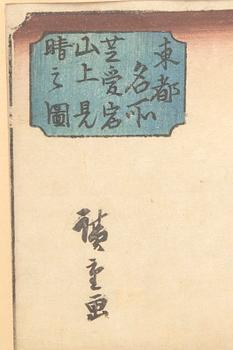 東都
名所
芝愛宕
山上見
晴之圖
廣重画